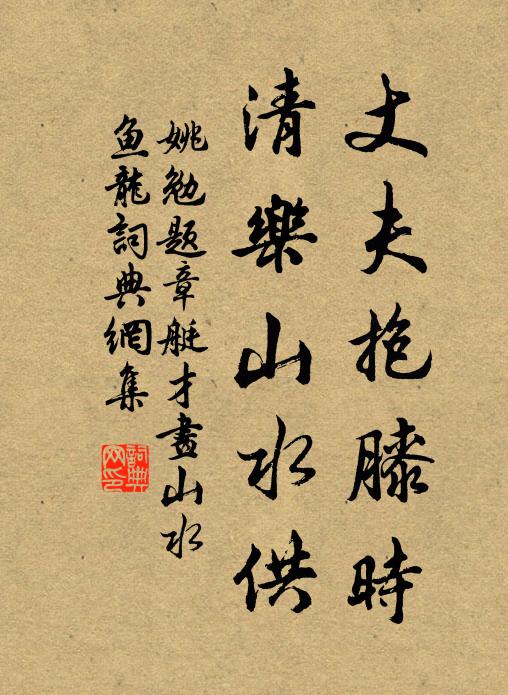 丈夫抱膝時
清樂山水供
姚勉題章艇才畫山水
魚龍詞典網集
詞典网印